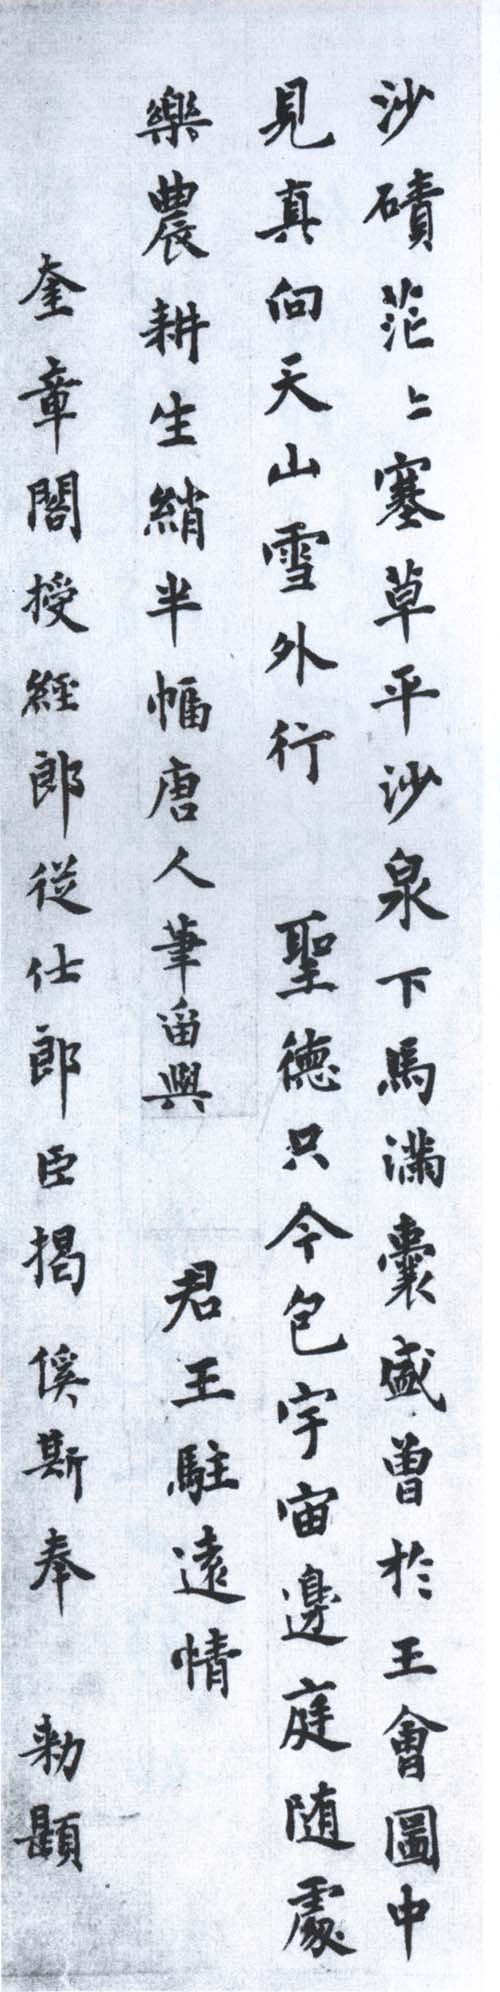 沙磧茫〻塞草平沙泉下馬满囊盛曾於王會圖中
見真向天山雪外行 聖德只今包宇宙邊庭随處
樂農耕生綃半幅唐人筆畱與 君王駐遠情
奎章閣授經郎從仕郎臣揭傒斯奉 勑題